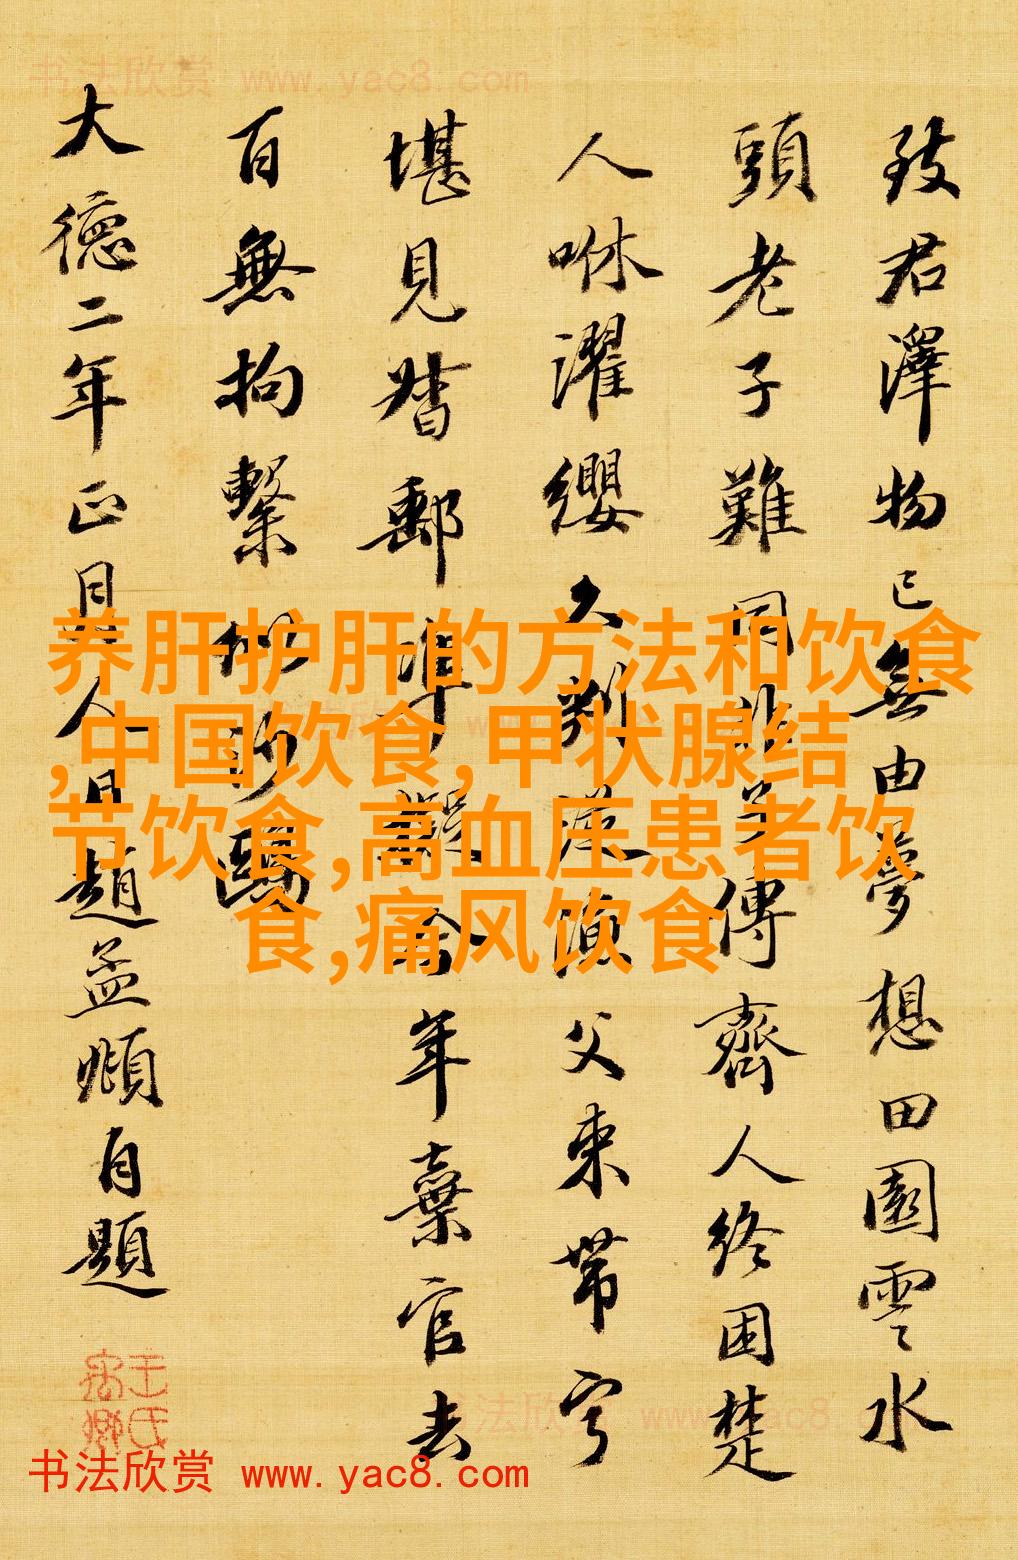 书法欣赏 www.yac8.com
致君澤物已無由夢想田園雲水
頭老子難同非子傳齊人終困楚
人咻濯纓久判從漁父束帶寧
堪見督郵準擬今年棄官去
百無拘繫似沙鷗
大德二年正月人日趙孟頫自題
养肝护肝的方法和饮食
,中国饮食,甲状腺结
节饮食,高血压患者饮
食,痛风饮食
书法欣赏 www.yac8.com